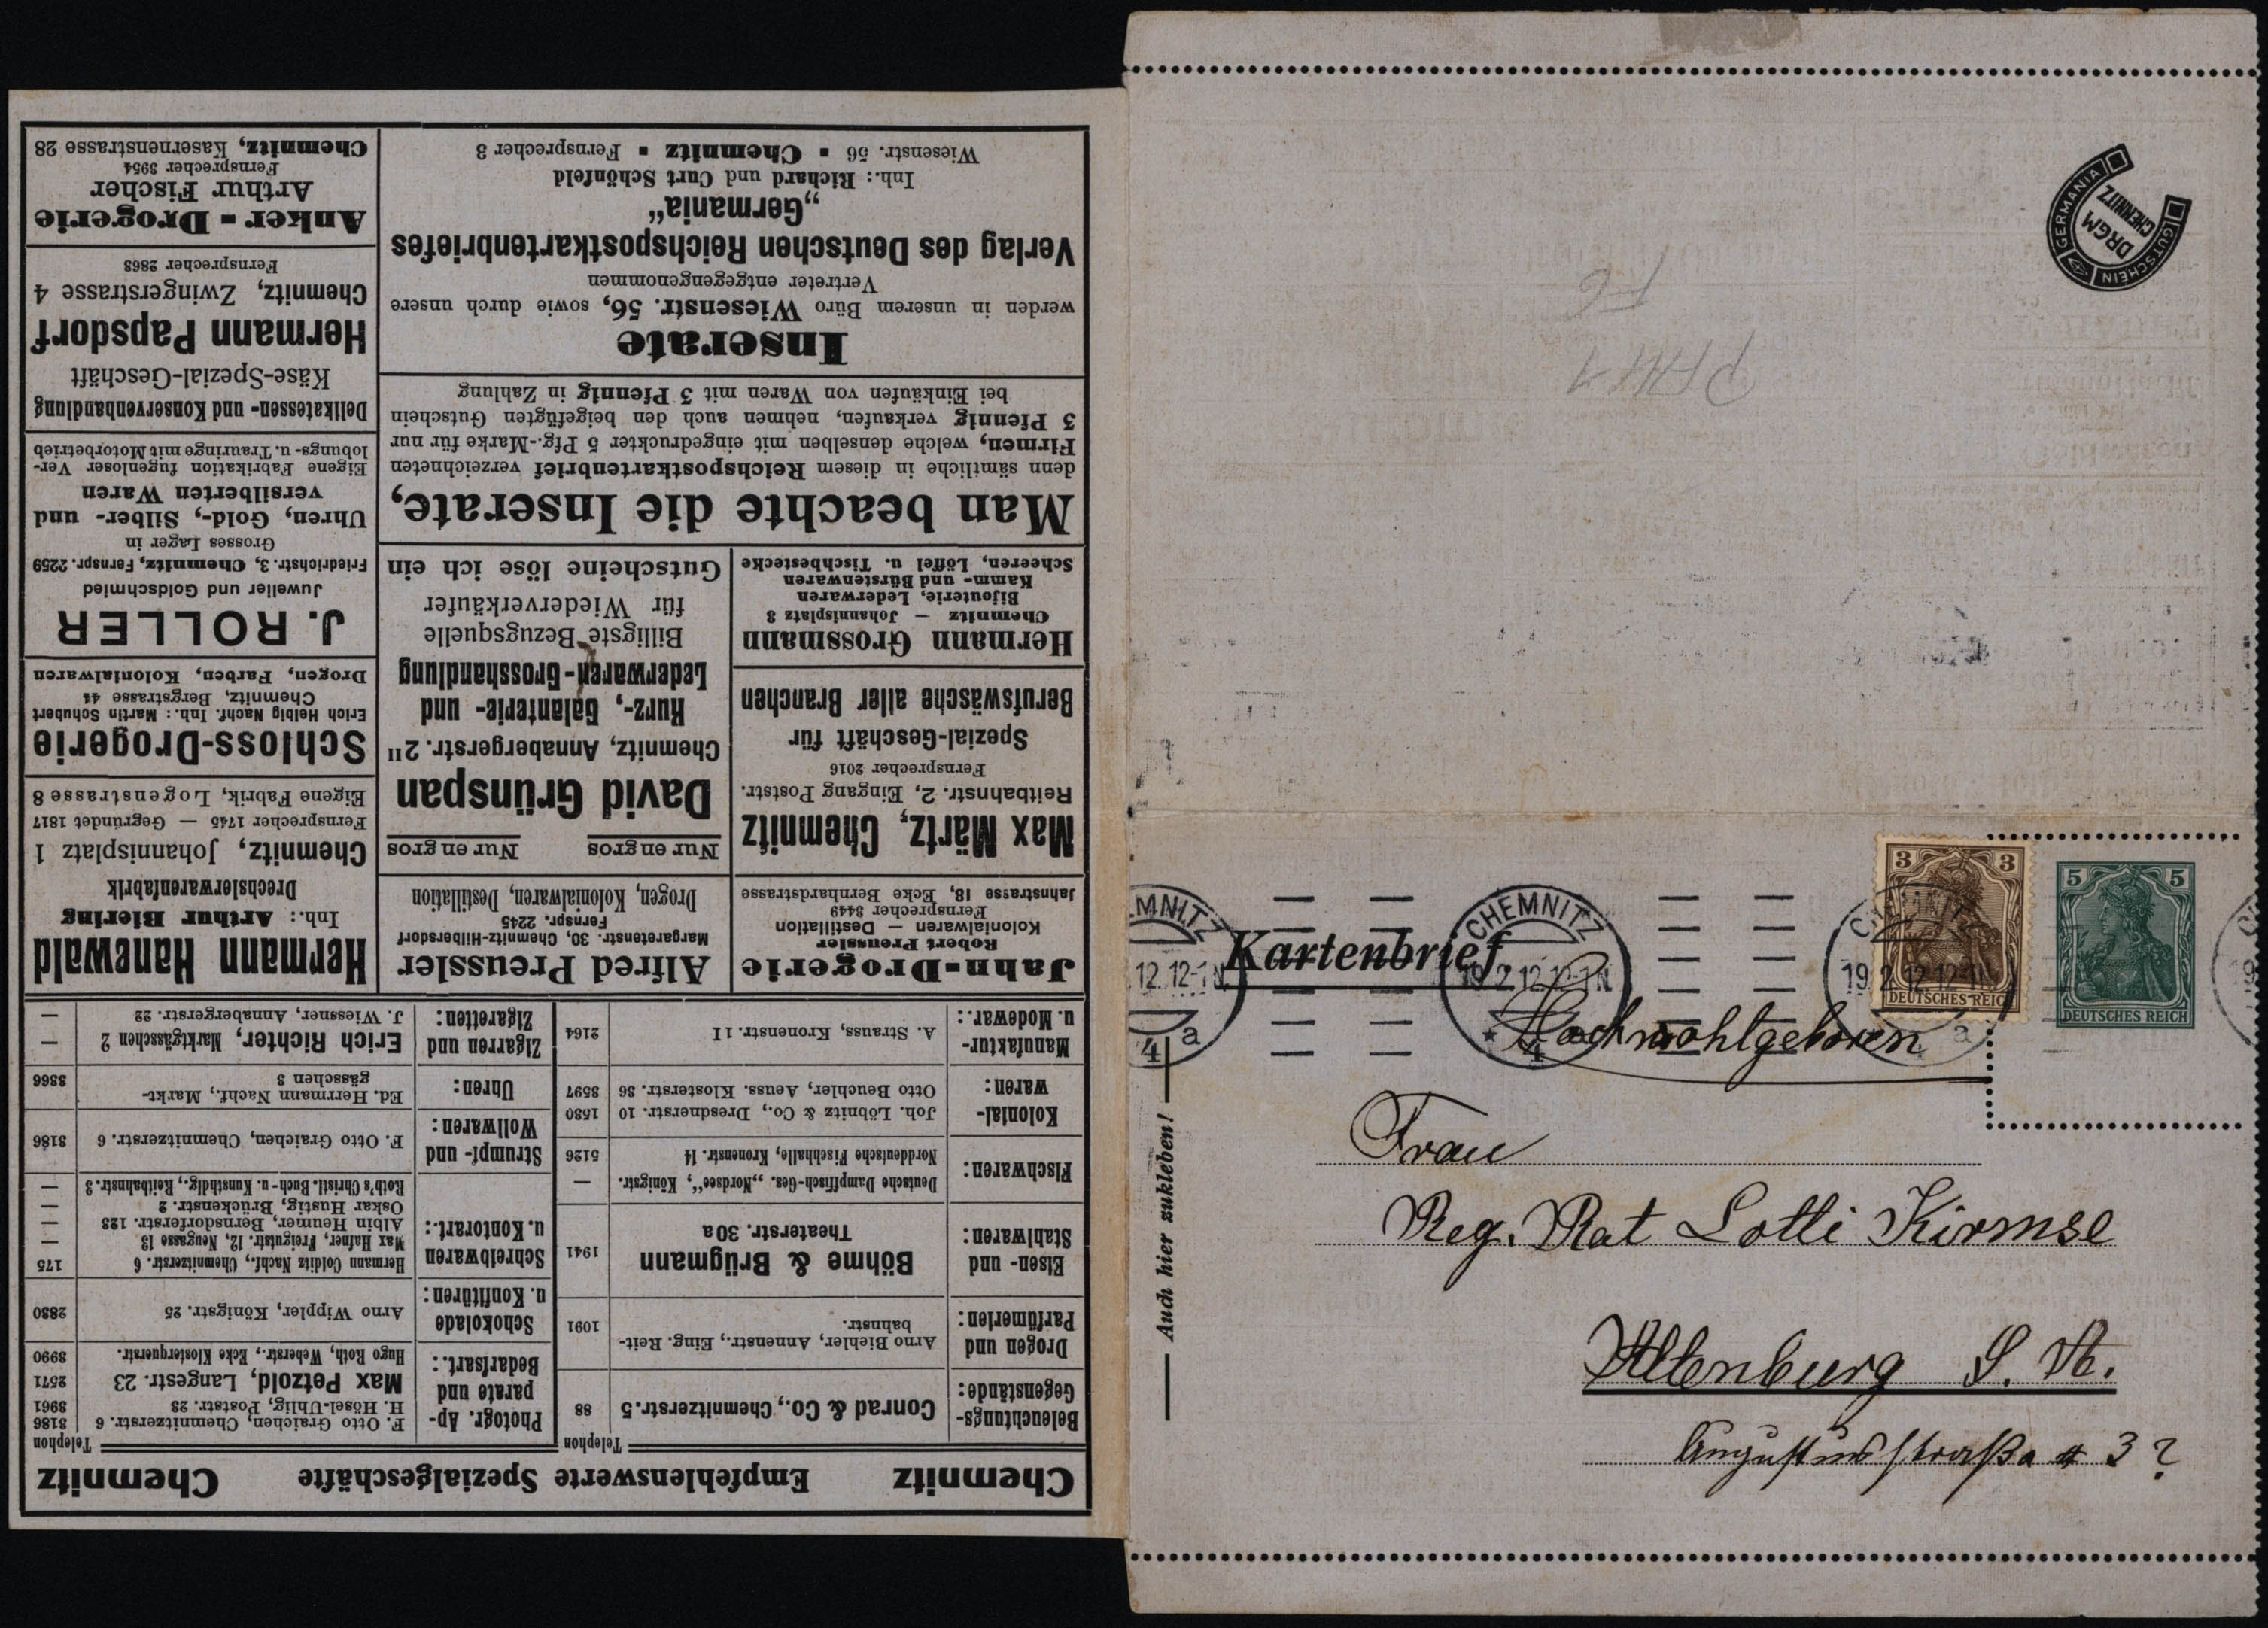 Chemnitz Empfehlenswerte Spezialgeschäfte Chemnitz
Telephon
Beleuchtungs-
Gegenstände:
Conrad & Co., Chemnitzerstr. 5
88
Drogen und
Parfümerien:
Arno Biehler, Annenstr., Eing. Reit-
bahnstr.
1091
Eisen- und
Stahlwaren:
Böhme & Brügmann
Theaterstr. 30a
1941
Fischwaren:
Deutsche Dampffisch-Ges. „Nordsee“, Königstr. —
Norddeutsche Fischhalle, Kronenstr. 14 5126
Kolonial-
waren:
Joh. Löbnitz & Co., Dresdnerstr. 10 1580
Otto Beuchler, Aeuss. Klosterstr. 36 3597
Manufaktur-
u. Modewar.:
A. Strauss, Kronenstr. 11
2164
Telephon
Photogr. Ap-
parate und
Bedarfsart.:
F. Otto Graichen, Chemnitzerstr. 6 3186
H. Hösel-Uhlig, Poststr. 28 3961
Max Petzold, Langestr. 23 2571
Hugo Roth, Weberstr., Ecke Klosterquerstr. 3990
Schokolade
u. Konfitüren:
Arno Wippler, Königstr. 25
2880
Schreibwaren
u. Kontorart.:
Hermann Colditz Nachf., Chemnitzerstr. 6 175
Max Hafner, Freigutstr. 12, Neugasse 13 —
Albin Heumer, Bernsdorferstr. 123 —
Oskar Hustig, Brückenstr. 2 —
Roth's Christl. Buch- u. Kunsthdlg., Reitbahnstr. 3 —
Strumpf- und
Wollwaren:
F. Otto Graichen, Chemnitzerstr. 6
3186
Uhren:
Ed. Herrmann Nachf., Markt-
gässchen 3
3866
Zigarren und
Zigaretten:
Erich Richter, Marktgässchen 2 —
J. Wiessner, Annabergerstr. 22 —
Jahn-Drogerie
Robert Preussler
Kolonialwaren — Destillation
Fernsprecher 3449
Jahnstrasse 18, Ecke Bernhardstrasse
Alfred Preussler
Margaretenstr. 30, Chemnitz-Hilbersdorf
Fernspr. 2245
Drogen, Kolonialwaren, Destillation
Hermann Hanewald
Inh.: Arthur Biering
Drechslerwarenfabrik
Chemnitz, Johannisplatz 1
Fernsprecher 1745 — Gegründet 1817
Eigene Fabrik, Logenstrasse 8
Max Märtz, Chemnitz
Reitbahnstr. 2, Eingang Poststr.
Fernsprecher 2016
Spezial-Geschäft für
Berufswäsche aller Branchen
Nur en gros Nur en gros
David Grünspan
Chemnitz, Annabergerstr. 2II
Kurz-, Galanterie- und
Lederwaren-Grosshandlung
Billigste Bezugsquelle
für Wiederverkäufer
Gutscheine löse ich ein
Schloss-Drogerie
Erich Helbig Nachf. Inh.: Martin Schubert
Chemnitz, Bergstrasse 44
Drogen, Farben, Kolonialwaren
Hermann Grossmann
Chemnitz — Johannisplatz 8
Bijouterie, Lederwaren
Kamm- und Bürstenwaren
Scheeren, Löffel u. Tischbestecke
J. ROLLER
Juwelier und Goldschmied
Friedrichstr. 3, Chemnitz, Fernspr. 2259
Grosses Lager in
Uhren, Gold-, Silber- und
versilberten Waren
Eigene Fabrikation fugenloser Ver-
lobungs- u. Trauringe mit Motorbetrieb
Man beachte die Inserate,
denn sämtliche in diesem Reichspostkartenbrief verzeichneten
Firmen, welche denselben mit eingedruckter 5 Pfg.-Marke für nur
3 Pfennig verkaufen, nehmen auch den beigefügten Gutschein
bei Einkäufen von Waren mit 3 Pfennig in Zahlung
Delikatessen- und Konservenhandlung
Käse-Spezial-Geschäft
Hermann Papsdorf
Chemnitz, Zwingerstrasse 4
Fernsprecher 2868
Inserate
werden in unserem Büro Wiesenstr. 56, sowie durch unsere
Vertreter entgegengenommen
Verlag des Deutschen Reichspostkartenbriefes
„Germania“
Inh.: Richard und Curt Schönfeld
Wiesenstr. 56 ▪ Chemnitz ▪ Fernsprecher 3
Anker-Drogerie
Arthur Fischer
Fernsprecher 3954
Chemnitz, Kasernenstrasse 28
GERMANIA
GUTSCHEIN
DRGM
CHEMNITZ
3 3
DEUTSCHES REICH
5 5
DEUTSCHES REICH
CHEMNITZ
19.2.12.12-1N
* 4 a
Kartenbrief
Hochwohlgeboren
Frau
Reg. Rat Lotti Kirmse
Altenburg S. A.
Augustusstraße # 3 ?
Auch hier zukleben!